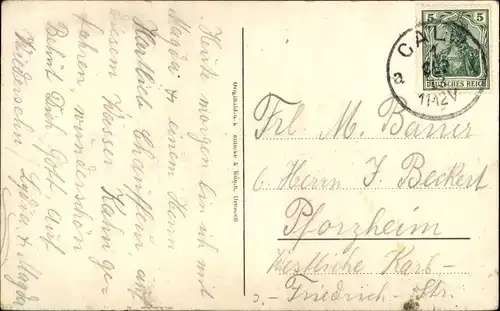 Heute morgen bin ich mit
Magda & einem Herrn
Hartlieb Chauffeur, auf
diesem Wasser Kahn ge-
fahren, wunderschön
Behüt Dich Gott, auf
Wiedersehn, Lydia & Magda
5 5
DEUTSCHES REICH
CALW
a
11-12V
Frl. M. Bauer
b. Herrn J. Beckert
Pforzheim
Westliche Karl-
Friedrich-Str.